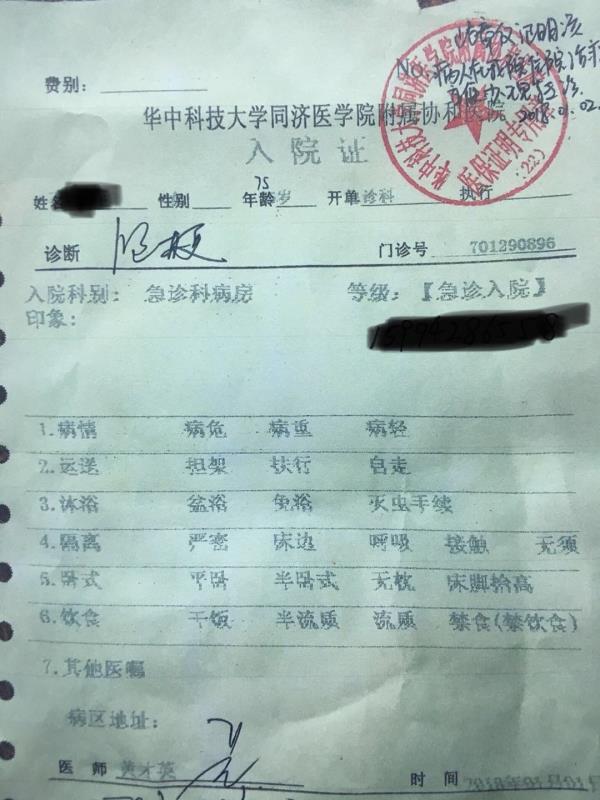 此章仅证明该
No. 病人在我院住院治疗
费别:
2018.01.02
华中科技大学同济医学院附属协和医院
入院证
医保证明专用章
(22)
姓名 性别 75 年龄 岁 开单诊科 执行
诊断 门诊号 701290896
入院科别: 急诊科病房 等级: 【急诊入院】
印象:
1.病情 病危 病重 病轻
2.运送 担架 扶行 自走
3.沐浴 盆浴 免浴 灭虫手续
4.隔离 严密 床边 呼吸 接触 无须
5.卧式 平卧 半卧式 无枕 床脚抬高
6.饮食 干饭 半流质 流质 禁食(禁饮食)
7.其他医嘱
病区地址:
医师 黄才英 时间 2018年01月01日